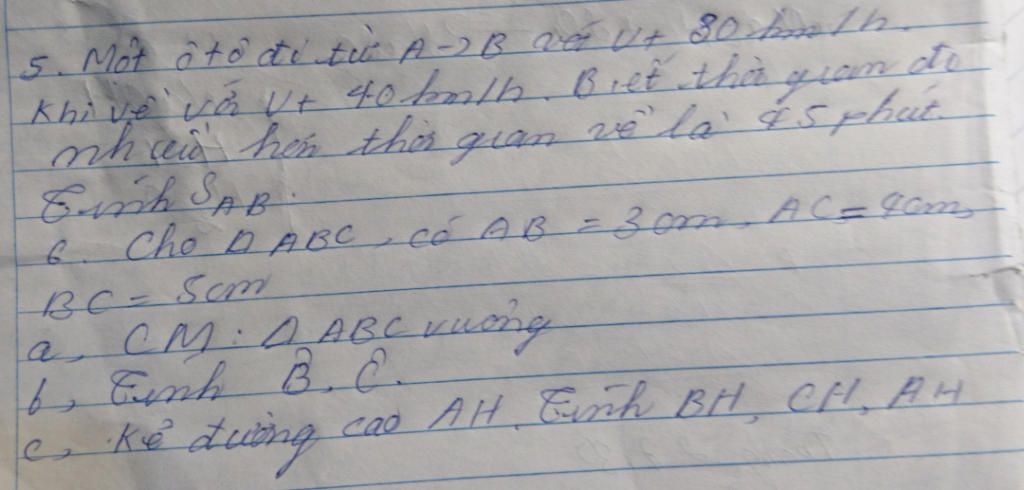 5. Một ô tô đi từ A→B với Vt 30 km/h.
Khi về với Vt 40 km/h. Biết thời gian đo
nhiều hơn thời gian về là 45 phút.
Tính SAB.
6. Cho Δ ABC, có AB = 3cm, AC = 4cm,
BC = 5cm
a, CM: Δ ABC vuông
b, Tính B̂, Ĉ.
c, Kẻ đường cao AH. Tính BH, CH, AH